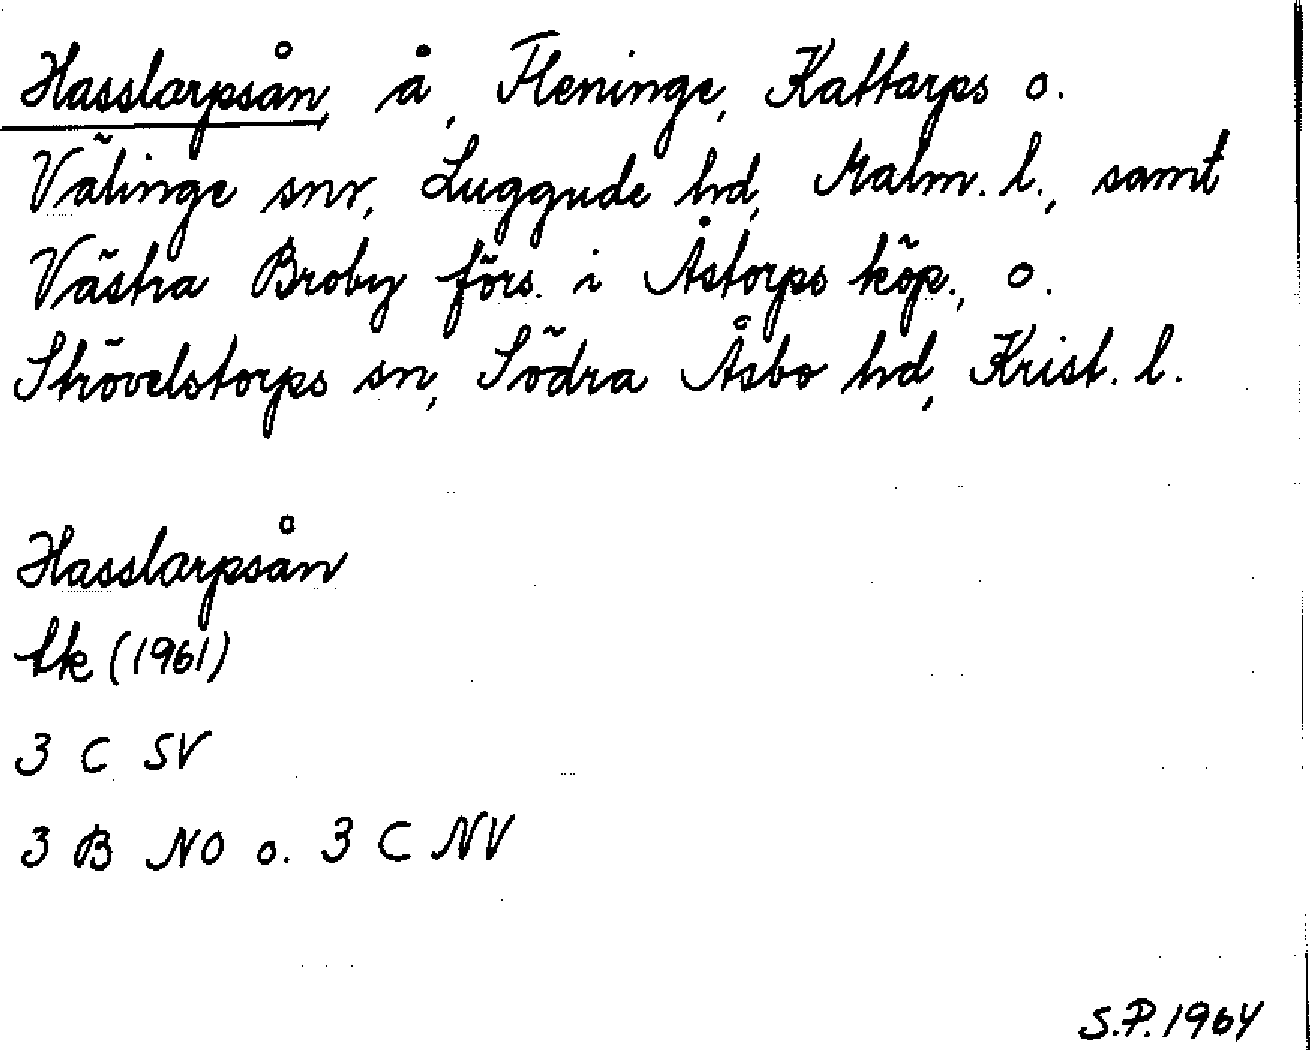 Hasslarpsån, å, Fleninge, Kattarps o.
Välinge snr, Luggude hd, Malm. l., samt
Västra Broby förs. i Åstorps köp., o.
Strövelstorps sn, Södra Åsbo hd, Krist. l.
Hasslarpsån
Ek (1961)
3 C SV
3 B NO o. 3 C NV
S.P. 1964